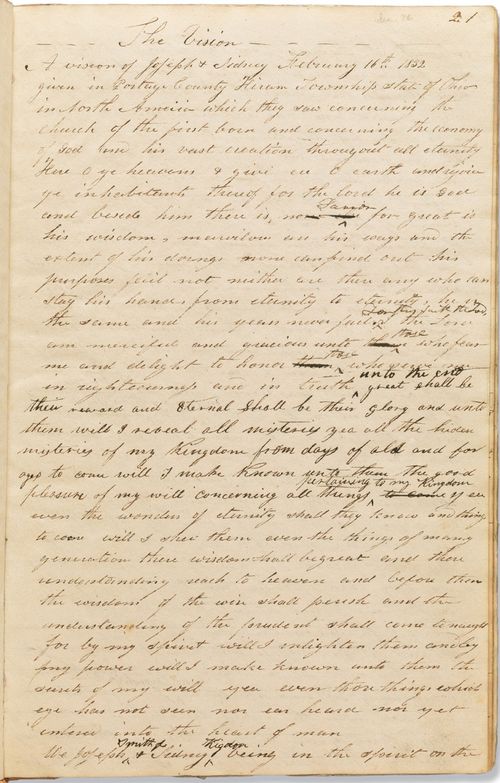 21
— — — The Vision — — —
A vision of Joseph & Sidney February 16th 1832
given in Portage County Hiram Township State of Ohio
in North America which they saw concerning the
church of the first born and concerning the economy
of God and his vast creation througout all eternity
Hear O ye heavens & give ear O earth and rejoice
ye inhabitants thereof for the lord he is God
and beside him there is no Saviour for great is
his wisdom marvilous are his ways and the
extent of his doings none can find out his
purposes fail not neither are there any who can
stay his hand from eternity to eternity he is
the same and his years never fail for thus saith the Lord
am merciful and gracious unto those who fear
me and delight to honor those who serve me
in righteousness and in truth unto the end great shall be
their reward and eternal shall be their glory and unto
them will I reveal all misteries yea all the hiden
misteries of my Kingdom from days of old and for
ages to come will I make known unto them the good
pleasure of my will concerning all things pertaining to my Kingdom to come yea
even the wonders of eternity shall they know and things
to come will I shew them even the things of many
generation there wisdom shall be great and there
understanding reach to heaven and before them
the wisdom of the wise shall perish and the
understanding of the prudent shall come to naught
for by my spirit will I enlighten them and by
my power will I make known unto them the
secrets of my will yea even those things which
eye has not seen nor ear heard nor yet
entered into the heart of man
We Joseph Smith & Sidney Rigdon being in the spirit on the